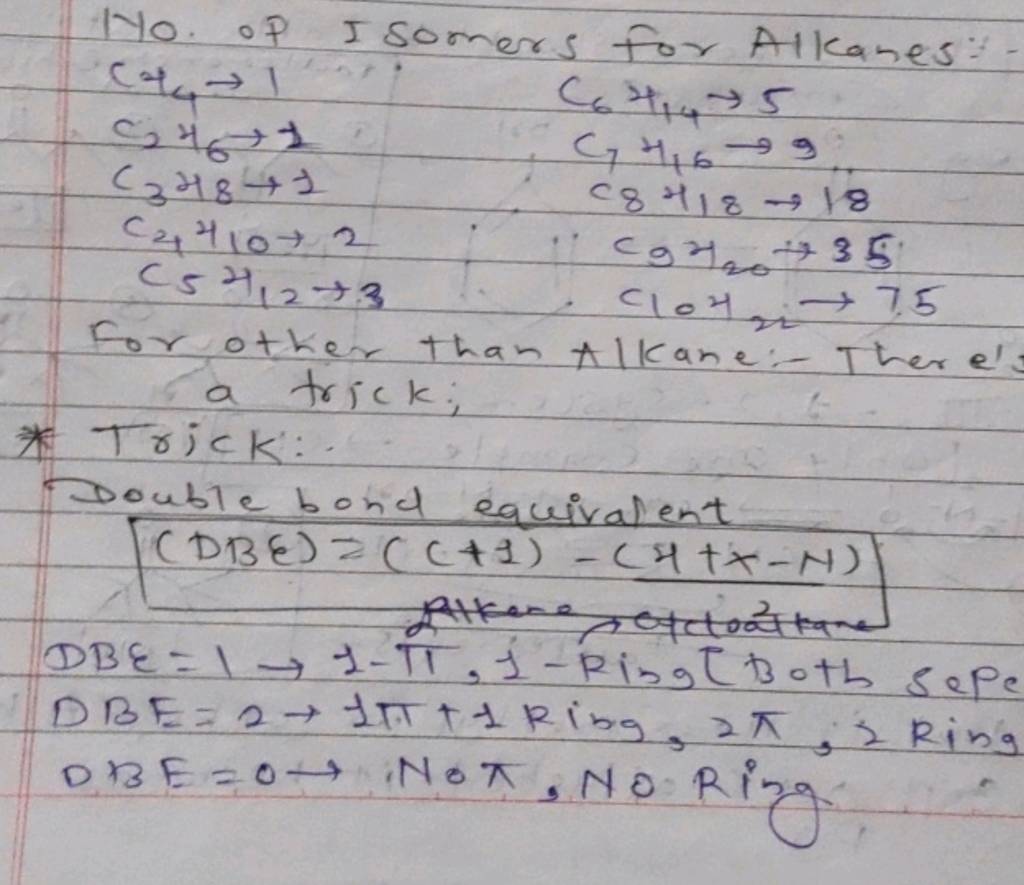 No. of Isomers for Alkanes:-
CH4 → 1
C2H6 → 1
C3H8 → 1
C4H10 → 2
C5H12 → 3
C6H14 → 5
C7H16 → 9
C8H18 → 18
C9H20 → 35
C10H22 → 75
For other than Alkane:- There's
a trick;
* Trick:-
Double bond equivalent
(DBE) = (C+1) - (H+X-N)
2
Alkene → Cycloalkane
DBE = 1 → 1-π, 1-Ring [Both sepe
DBE = 2 → 1π + 1 Ring, 2π, 2 Ring
DBE = 0 → No π, No Ring